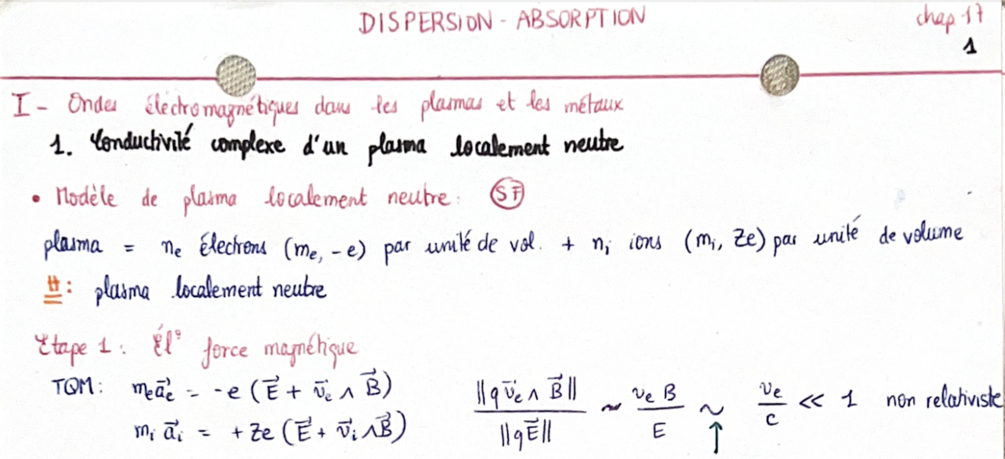 DISPERSION - ABSORPTION
chap 17
1
I - Ondes électromagnétiques dans les plasmas et les métaux
1. Conductivité complexe d'un plasma localement neutre
• Modèle de plasma localement neutre : SF
plasma = nₑ électrons (mₑ, -e) par unité de vol. + nᵢ ions (mᵢ, Ze) par unité de volume
H : plasma localement neutre
Etape 1 : Él° force magnétique
TQM : mₑa⃗ₑ = -e (E⃗ + v⃗ₑ ∧ B⃗) ||q v⃗ₑ ∧ B⃗|| / ||qE⃗|| ~ vₑ B / E ~ vₑ / c ≪ 1 non relativiste
mᵢ a⃗ᵢ = + Ze (E⃗ + v⃗ᵢ ∧ B⃗) ↑